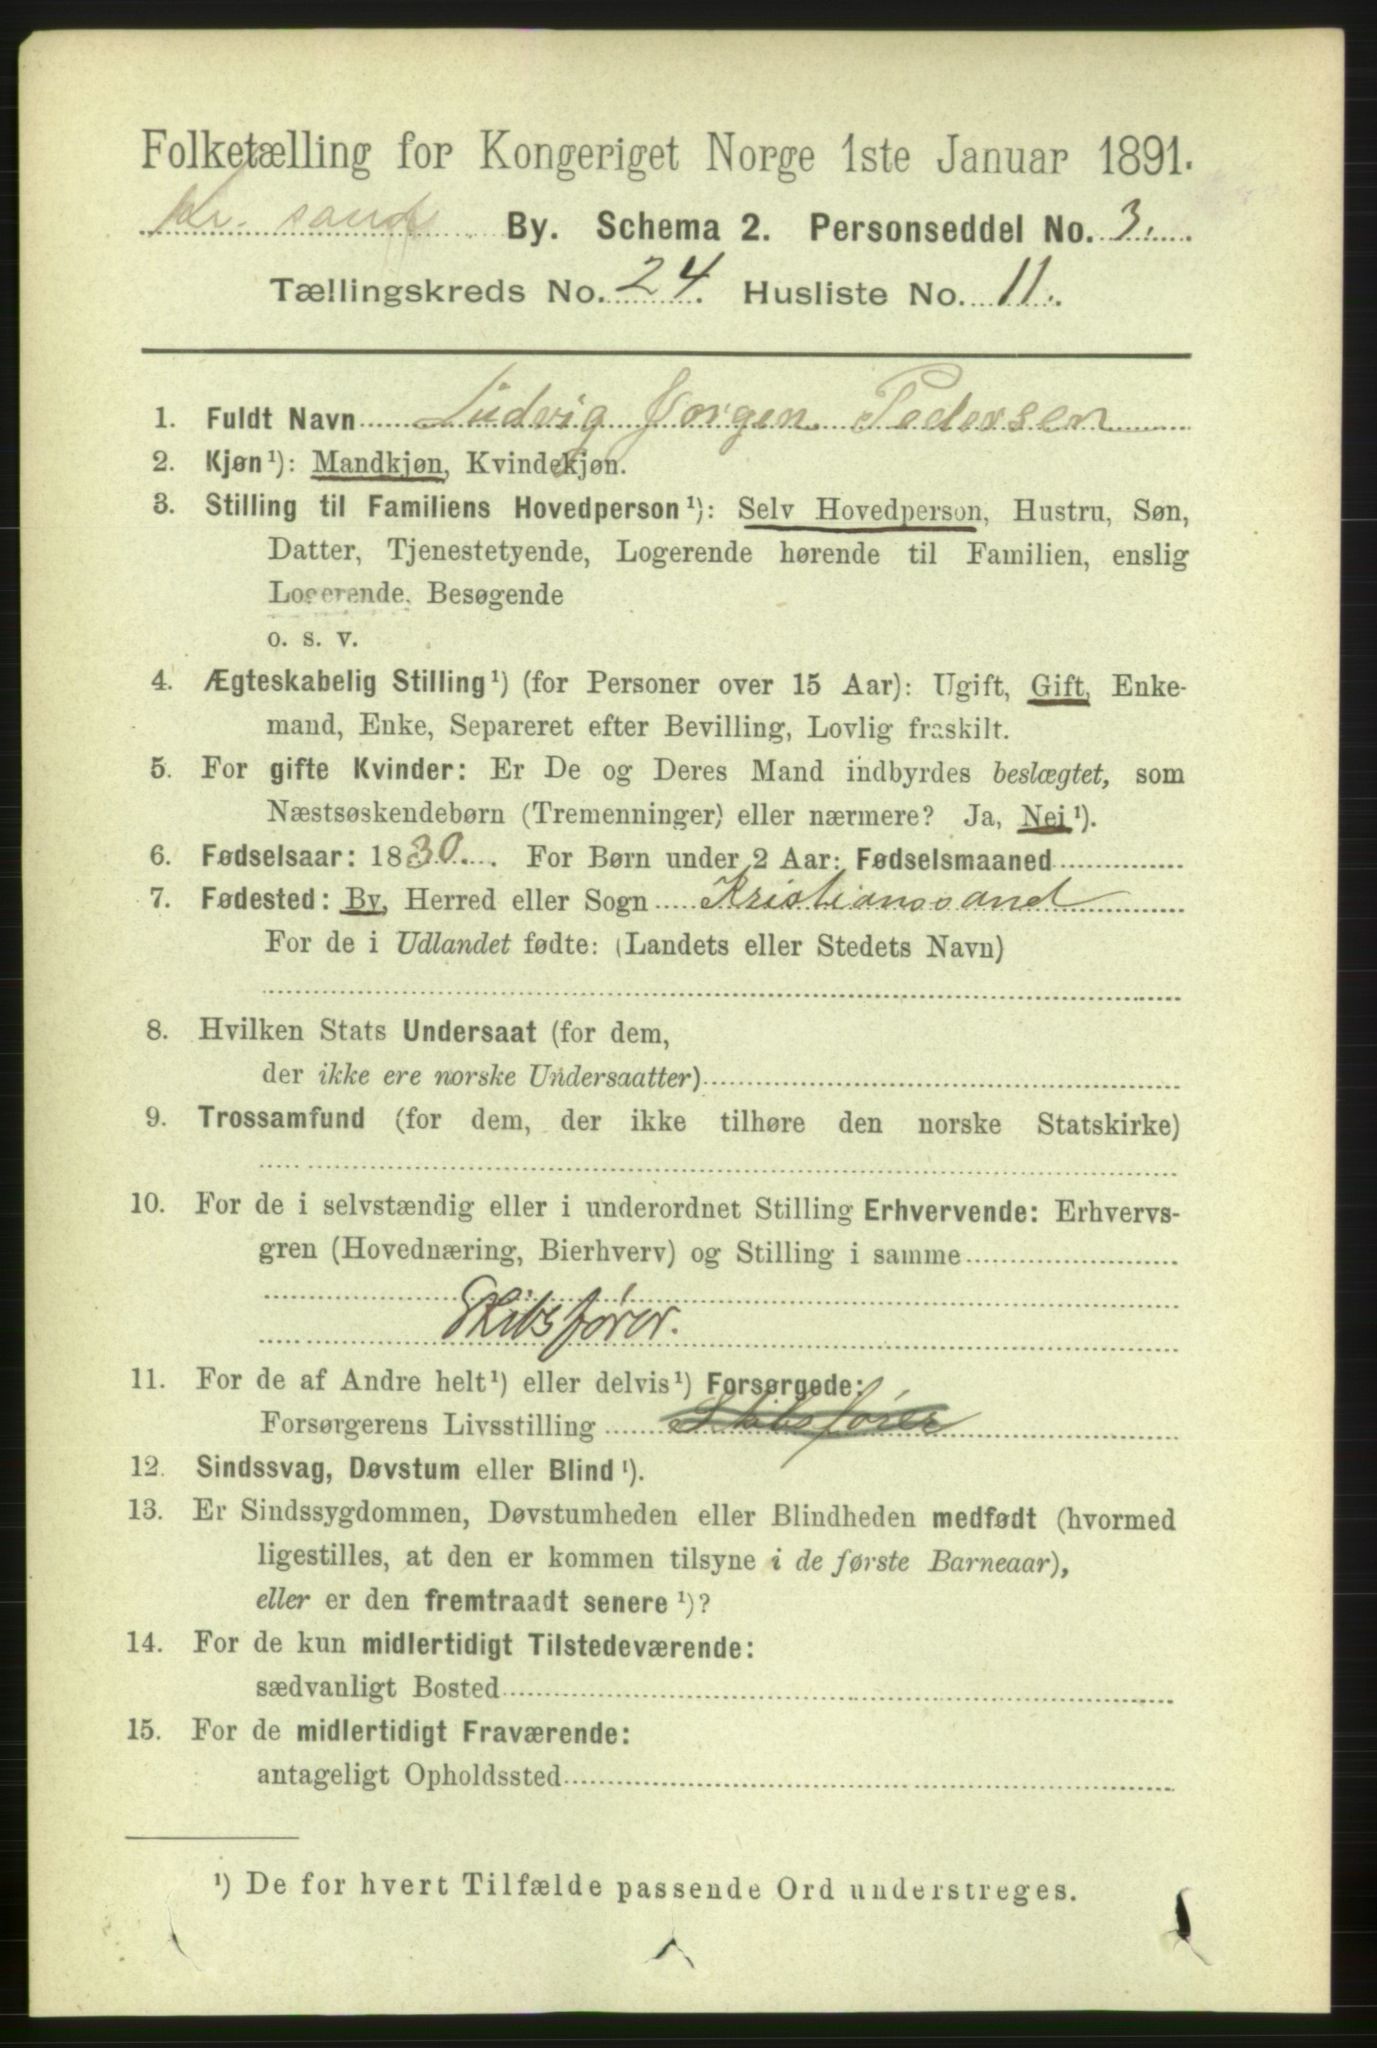 Folketælling for Kongeriget Norge 1ste Januar 1891.
Kr. sand By. Schema 2. Personseddel No. 3.
Tællingskreds No. 24. Husliste No. 11.
1. Fuldt Navn Ludvig Jørgen Pedersen
2. Kjøn¹): Mandkjøn, Kvindekjøn.
3. Stilling til Familiens Hovedperson¹): Selv Hovedperson, Hustru, Søn,
Datter, Tjenestetyende, Logerende hørende til Familien, enslig
Logerende, Besøgende
o. s. v.
4. Ægteskabelig Stilling¹) (for Personer over 15 Aar): Ugift, Gift, Enke-
mand, Enke, Separeret efter Bevilling, Lovlig fraskilt.
5. For gifte Kvinder: Er De og Deres Mand indbyrdes beslægtet, som
Næstsøskendebørn (Tremenninger) eller nærmere? Ja, Nei¹).
6. Fødselsaar: 1830. For Børn under 2 Aar: Fødselsmaaned
7. Fødested: By, Herred eller Sogn Kristianssand
For de i Udlandet fødte: (Landets eller Stedets Navn)
8. Hvilken Stats Undersaat (for dem,
der ikke ere norske Undersaatter)
9. Trossamfund (for dem, der ikke tilhøre den norske Statskirke)
10. For de i selvstændig eller i underordnet Stilling Erhvervende: Erhvervs-
gren (Hovednæring, Bierhverv) og Stilling i samme
Skibsfører.
11. For de af Andre helt¹) eller delvis¹) Forsørgede:
Forsørgerens Livsstilling Skibsfører
12. Sindssvag, Døvstum eller Blind¹).
13. Er Sindssygdommen, Døvstumheden eller Blindheden medfødt (hvormed
ligestilles, at den er kommen tilsyne i de første Barneaar),
eller er den fremtraadt senere¹)?
14. For de kun midlertidigt Tilstedeværende:
sædvanligt Bosted
15. For de midlertidigt Fraværende:
antageligt Opholdssted
¹) De for hvert Tilfælde passende Ord understreges.